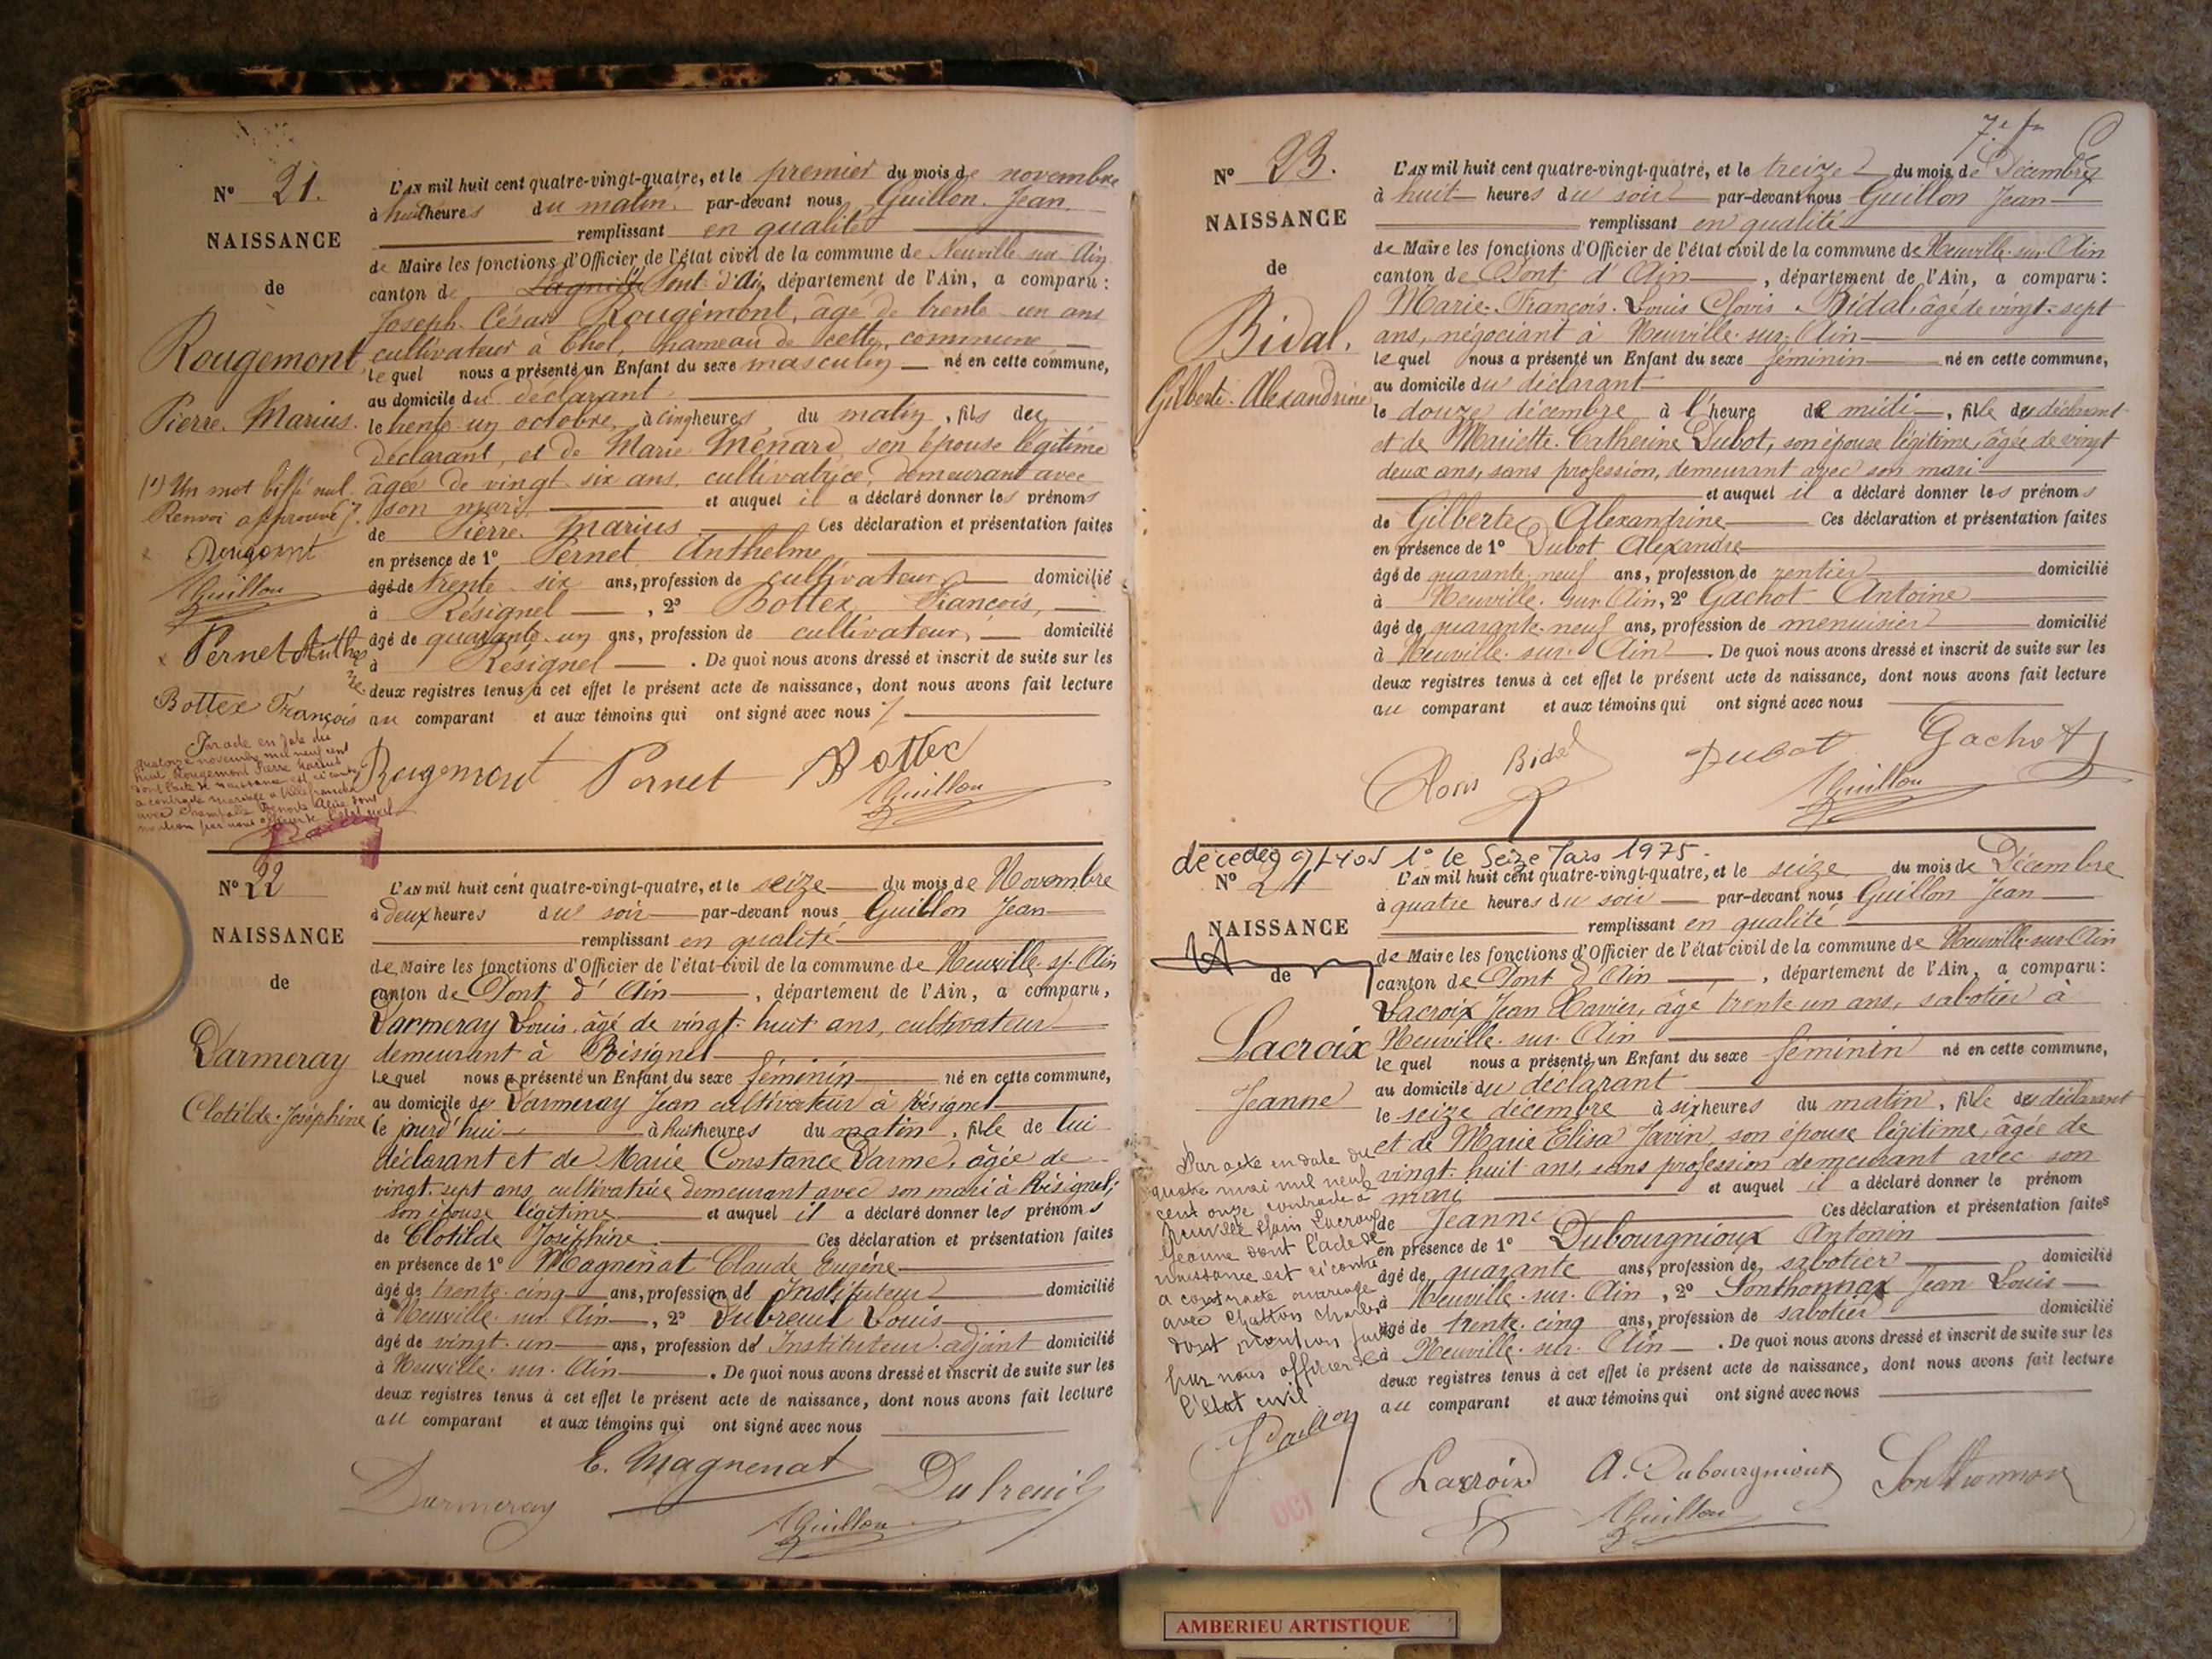 N° 21.
NAISSANCE
de
Rougemont
Pierre Marius.
(1) Un mot biffé nul.
Renvoi approuvé
Rougemont
Guillon
Pernet Anthelme
Bottex François
Par acte en date du
quatorze novembre mil neuf cent
huit Rougemont Pierre Marius
dont l'acte de naissance est ci contre
a contracté mariage à Villefranche
avec Champalle
mention par nous officier de l'état civil
L'AN mil huit cent quatre-vingt-quatre, et le premier du mois de novembre
à huit heures du matin, par-devant nous Guillon Jean
remplissant en qualité
de Maire les fonctions d'Officier de l'état civil de la commune de Neuville sur Ain
canton de Lagnieu Pont d'Ain, département de l'Ain, a comparu :
Joseph César Rougemont, âgé de trente un ans
cultivateur à Thol, hameau de cette commune
le quel nous a présenté un Enfant du sexe masculin né en cette commune,
au domicile du déclarant
le trente un octobre, à cinq heures du matin, fils du
déclarant, et de Marie Ménard, son épouse légitime
âgée de vingt six ans, cultivatrice, demeurant avec
son mari, et auquel il a déclaré donner les prénoms
de Pierre Marius Ces déclaration et présentation faites
en présence de 1° Pernet Anthelme
âgé de trente six ans, profession de cultivateur domicilié
à Résignel, 2° Bottex François,
âgé de quarante un ans, profession de cultivateur, domicilié
à Résignel. De quoi nous avons dressé et inscrit de suite sur les
deux registres tenus à cet effet le présent acte de naissance, dont nous avons fait lecture
au comparant et aux témoins qui ont signé avec nous
Rougemont Pernet Bottex
Guillon
N° 22
NAISSANCE
de
Darmeray
Clotilde Joséphine
L'AN mil huit cent quatre-vingt-quatre, et le seize du mois de Novembre
à deux heures du soir par-devant nous Guillon Jean
remplissant en qualité
de Maire les fonctions d'Officier de l'état-civil de la commune de Neuville s/ Ain
canton de Pont d'Ain, département de l'Ain, a comparu,
Darmeray Louis, âgé de vingt-huit ans, cultivateur
demeurant à Résignel
le quel nous a présenté un Enfant du sexe féminin né en cette commune,
au domicile de Darmeray Jean cultivateur à Résignel
le jourd'hui à huit heures du matin, fille de lui
déclarant et de Marie Constance Darme, âgée de
vingt-sept ans cultivatrice demeurant avec son mari à Résignel,
son épouse légitime et auquel il a déclaré donner les prénoms
de Clotilde Joséphine Ces déclaration et présentation faites
en présence de 1° Magnenat Claude Eugène
âgé de trente-cinq ans, profession de Instituteur domicilié
à Neuville sur Ain, 2° Dubreuil Louis
âgé de vingt-un ans, profession de Instituteur-adjoint domicilié
à Neuville-sur-Ain. De quoi nous avons dressé et inscrit de suite sur les
deux registres tenus à cet effet le présent acte de naissance, dont nous avons fait lecture
au comparant et aux témoins qui ont signé avec nous
Darmeray E. Magnenat Dubreuil
Guillon
7e
N° 23.
NAISSANCE
de
Bidal,
Gilberte-Alexandrine
L'AN mil huit cent quatre-vingt-quatre, et le treize du mois de Décembre
à huit heures du soir par-devant nous Guillon Jean
remplissant en qualité
de Maire les fonctions d'Officier de l'état civil de la commune de Neuville-sur-Ain
canton de Pont d'Ain, département de l'Ain, a comparu :
Marie-François-Louis Clovis Bidal, âgé de vingt-sept
ans, négociant à Neuville-sur-Ain
le quel nous a présenté un Enfant du sexe féminin né en cette commune,
au domicile du déclarant
le douze décembre à l'heure de midi, fille du déclarant
et de Mariette-Catherine Dubot, son épouse légitime, âgée de vingt
deux ans, sans profession, demeurant avec son mari
et auquel il a déclaré donner les prénoms
de Gilberte Alexandrine Ces déclaration et présentation faites
en présence de 1° Dubot Alexandre
âgé de quarante-neuf ans, profession de rentier domicilié
à Neuville-sur-Ain, 2° Gachot Antoine
âgé de quarante-neuf ans, profession de menuisier domicilié
à Neuville-sur-Ain. De quoi nous avons dressé et inscrit de suite sur les
deux registres tenus à cet effet le présent acte de naissance, dont nous avons fait lecture
au comparant et aux témoins qui ont signé avec nous
Clovis Bidal Dubot Gachot
Guillon
décédée à Lyon 1° le Seize Mars 1975.
N° 24
NAISSANCE
de
Lacroix
Jeanne
Par acte en date du
quatre mai mil neuf
cent onze contracté à
Neuville s/Ain Lacroix
Jeanne dont l'acte de
naissance est ci contre
a contracté mariage
avec Chatton Charles
dont mention faite
par nous officier de
l'état civil
L'AN mil huit cent quatre-vingt-quatre, et le seize du mois de Décembre
à quatre heures du soir par-devant nous Guillon Jean
remplissant en qualité
de Maire les fonctions d'Officier de l'état civil de la commune de Neuville-sur-Ain
canton de Pont d'Ain, département de l'Ain, a comparu :
Lacroix Jean Xavier, âgé trente un ans, sabotier à
Neuville-sur-Ain
le quel nous a présenté un Enfant du sexe féminin né en cette commune,
au domicile du déclarant
le seize décembre à six heures du matin, fille du déclarant
et de Marie Elisa Javin, son épouse légitime, âgée de
vingt-huit ans, sans profession demeurant avec son
mari et auquel il a déclaré donner le prénom
de Jeanne Ces déclaration et présentation faites
en présence de 1° Dubourgnioux Antonin
âgé de quarante ans, profession de sabotier domicilié
à Neuville-sur-Ain, 2° Sonthonnax Jean Louis
âgé de trente-cinq ans, profession de sabotier domicilié
à Neuville-sur-Ain. De quoi nous avons dressé et inscrit de suite sur les
deux registres tenus à cet effet le présent acte de naissance, dont nous avons fait lecture
au comparant et aux témoins qui ont signé avec nous
Lacroix A. Dubourgnioux Sonthonnax
Guillon
OCT
AMBERIEU ARTISTIQUE